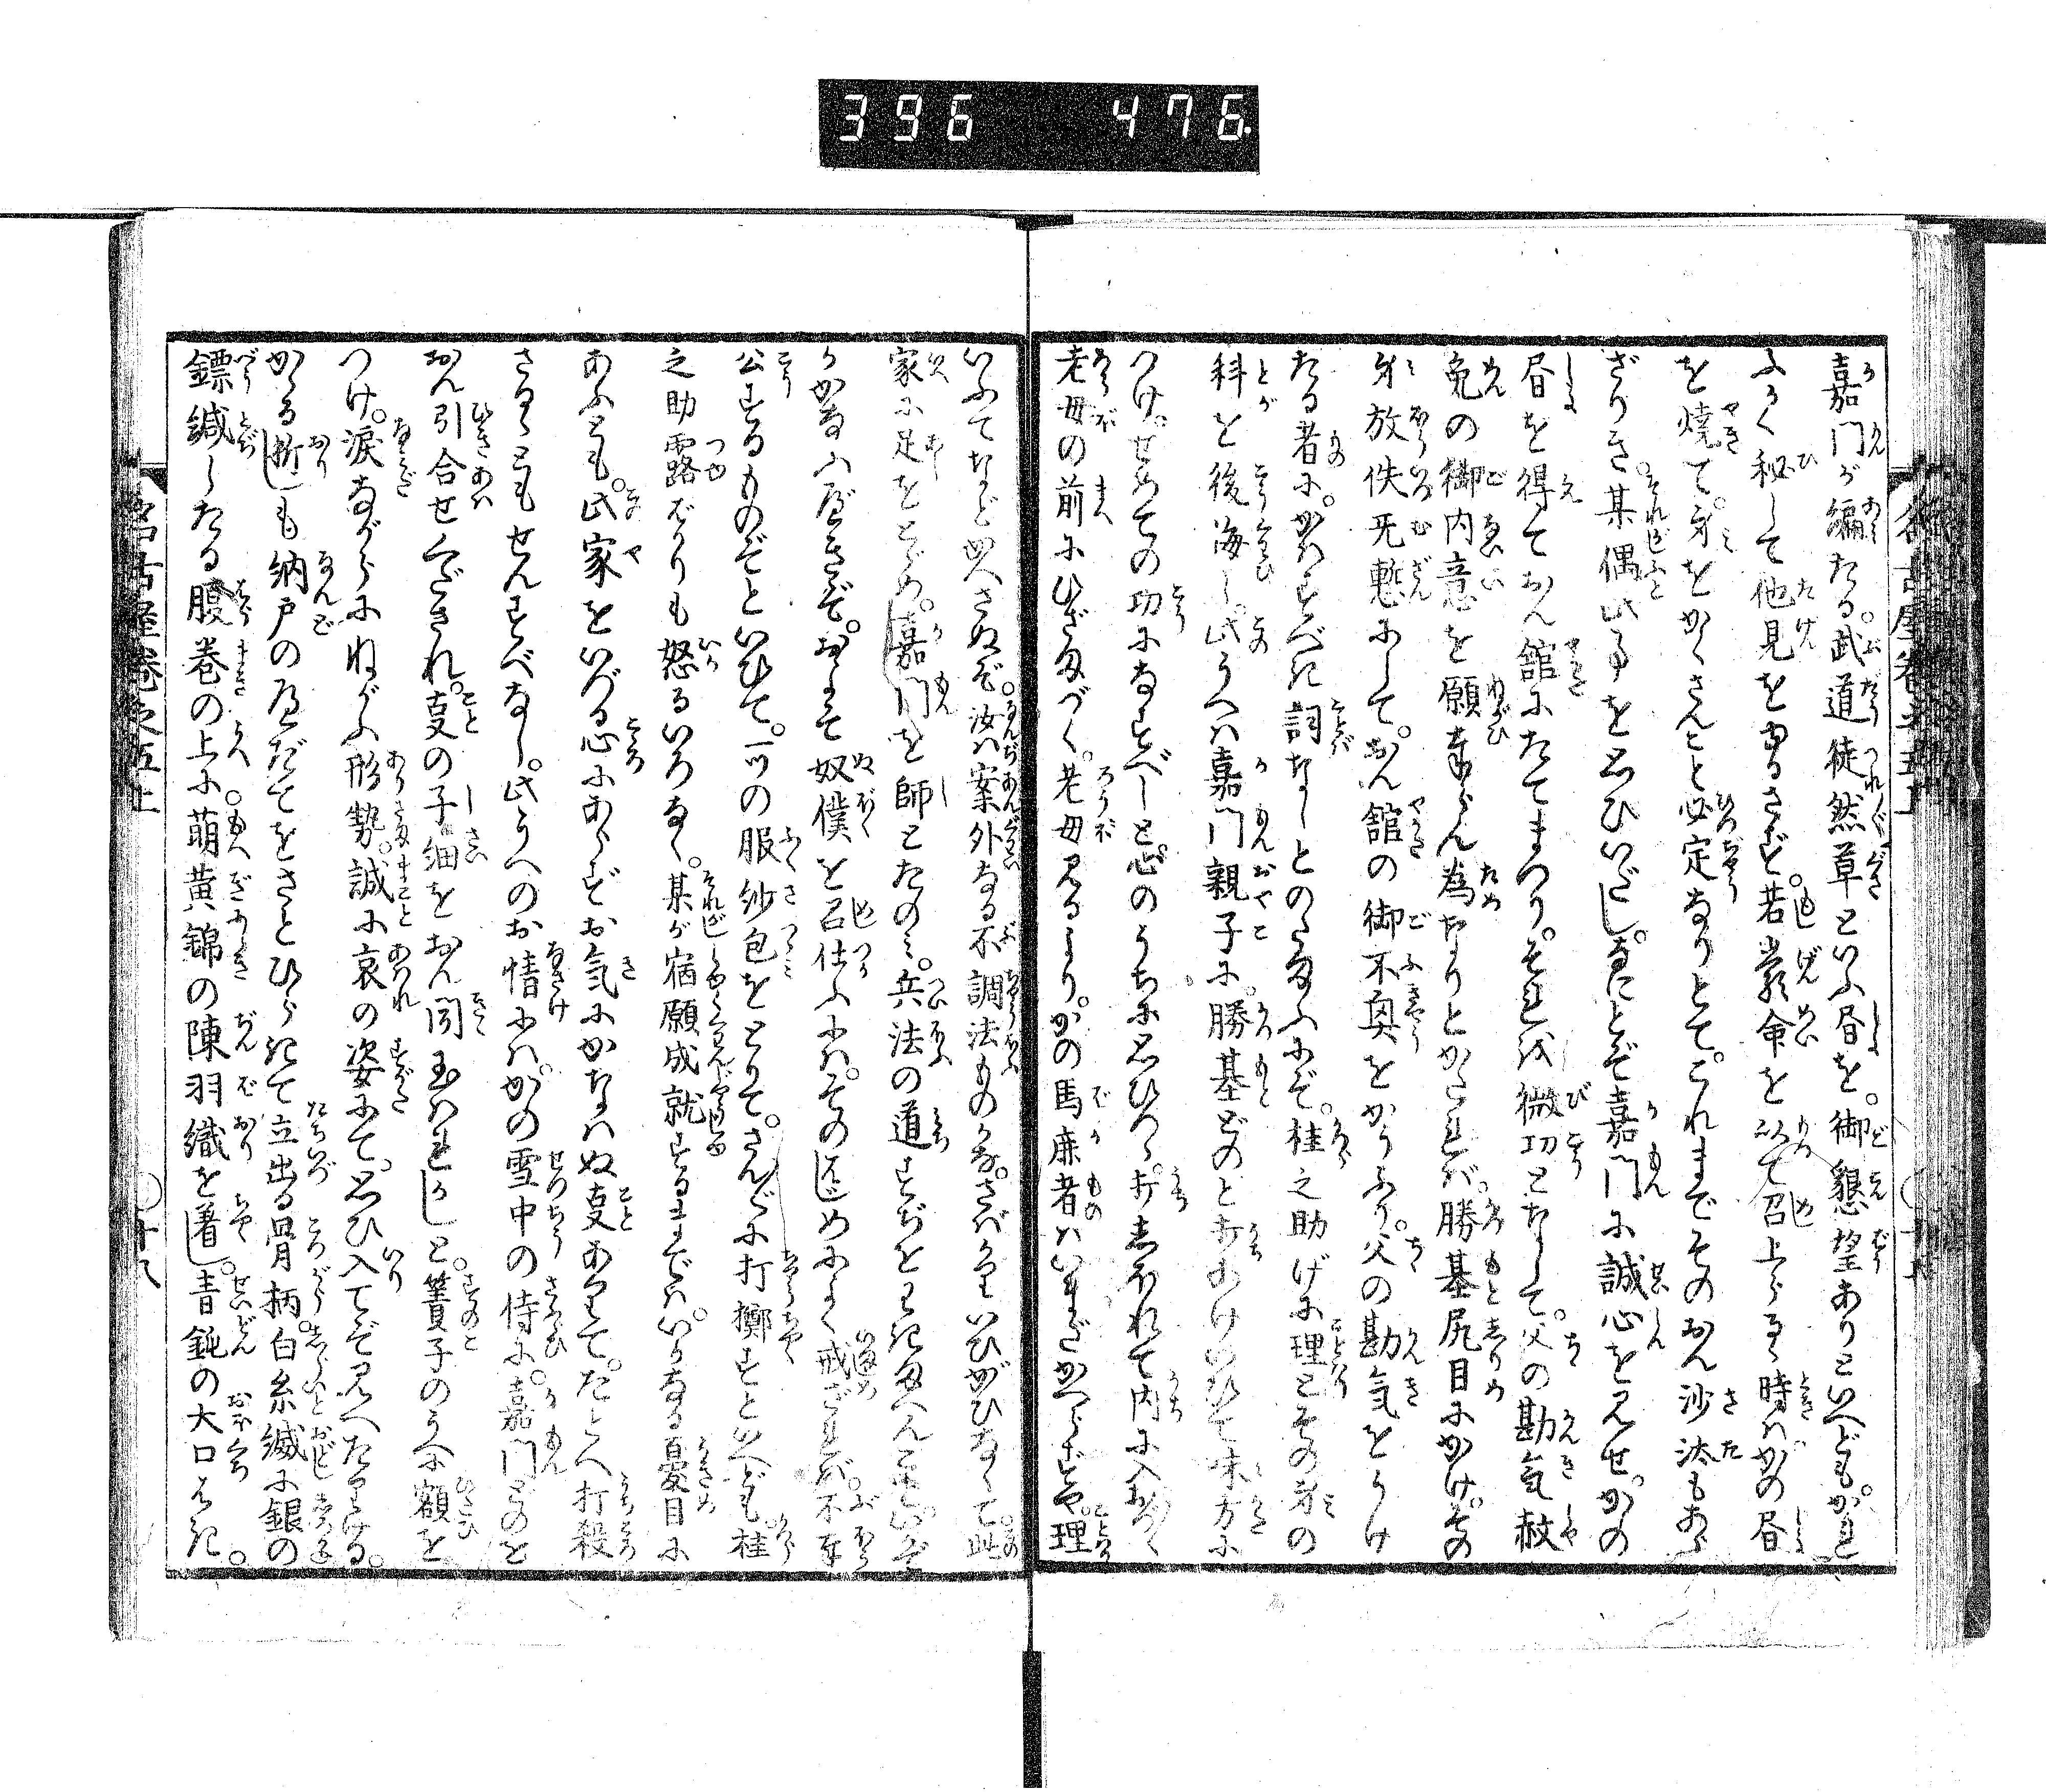 396 476
嘉門が編たる。武道徒然草といふ昼を。御懇望ありといへども。かれ
ふかく秘して他見をゆるさず。若厳命を以て召上らるゝ時はかの昼
を焼て。身をかくさんこと必定なりとて。これまでそのおん沙汰もあら
ざりき。某偶此事を思ひいだし。なにとぞ嘉門に誠心を見せ。かの
昼を得ておん館にたてまつり。それを微功となして。父の勘気赦
免の御内意を願奉らん為なりとかたれば。勝基尻目にかけ。その
身放佚无慙にして。おん館の御不奥をかうふり。父の勘気をうけ
たる者に。かはすべき詞なしとのたまふにぞ。桂之助げに理とその身の
科を後海し。此うへは嘉門親子に。勝基どのと打あけいひて味方に
つけ。せめての功になすべしと。心のうちに思ひつゝ。打しほれて内に入おく
老母の前にひざまづく。老母見るより。かの馬鹿者はいまだかへらずや。理
いふてなどかへさぬぞ。汝は案外なる不調法ものかな。さばかりいひがひなくて此
家に足をとゞめ。嘉門を師とたのみ。兵法の道すぢをまなびたまへんこといかで
うかなふべきぞ。おしなて奴僕を召仕ふには。そのはじめによく戒ざれば。不奉
公するものぞといひて。一つの服紗包をとりて。さんざに打擲すといへども。桂
之助露ばかりも怒るいろなく。某が宿願成就するまでは。いかなる憂目に
あふとも。此家をいづる心にあらず。お気にかなはぬ事ありて。たとへ打殺
さるゝともせんすべなし。此うへのお情には。かの雪中の侍に。嘉門どのを
おん引合せくだされ。事の子細をおん聞玉はれかしと。簀子のうへに額を
つけ。涙ながらにねがふ形勢。誠に哀の姿にて。思ひ入てぞ見へたりける。
かゝる折しも納戸の戸だてをさとひらきて立出る骨柄。白糸縅に銀の
鏢縅したる腹巻の上に。萌黄錦の陳羽織を着し。青鈍の大口はき。
名古屋巻之五上
十八